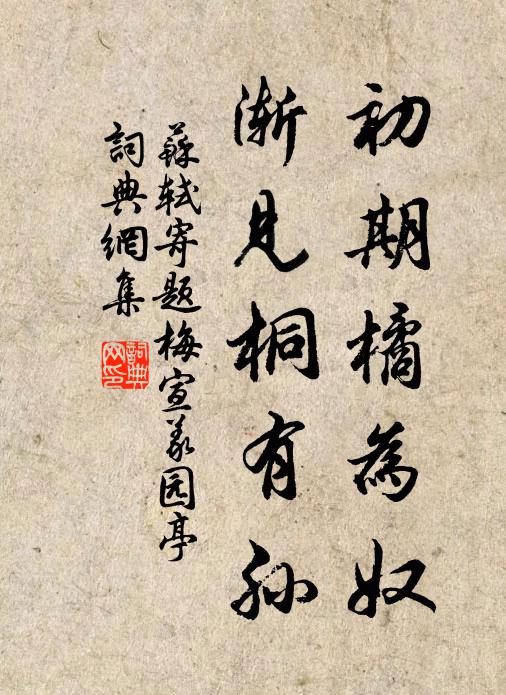 初期橘為奴
漸見桐有孙
蘇軾寄题梅宣义园亭
詞典網集
詞典網印